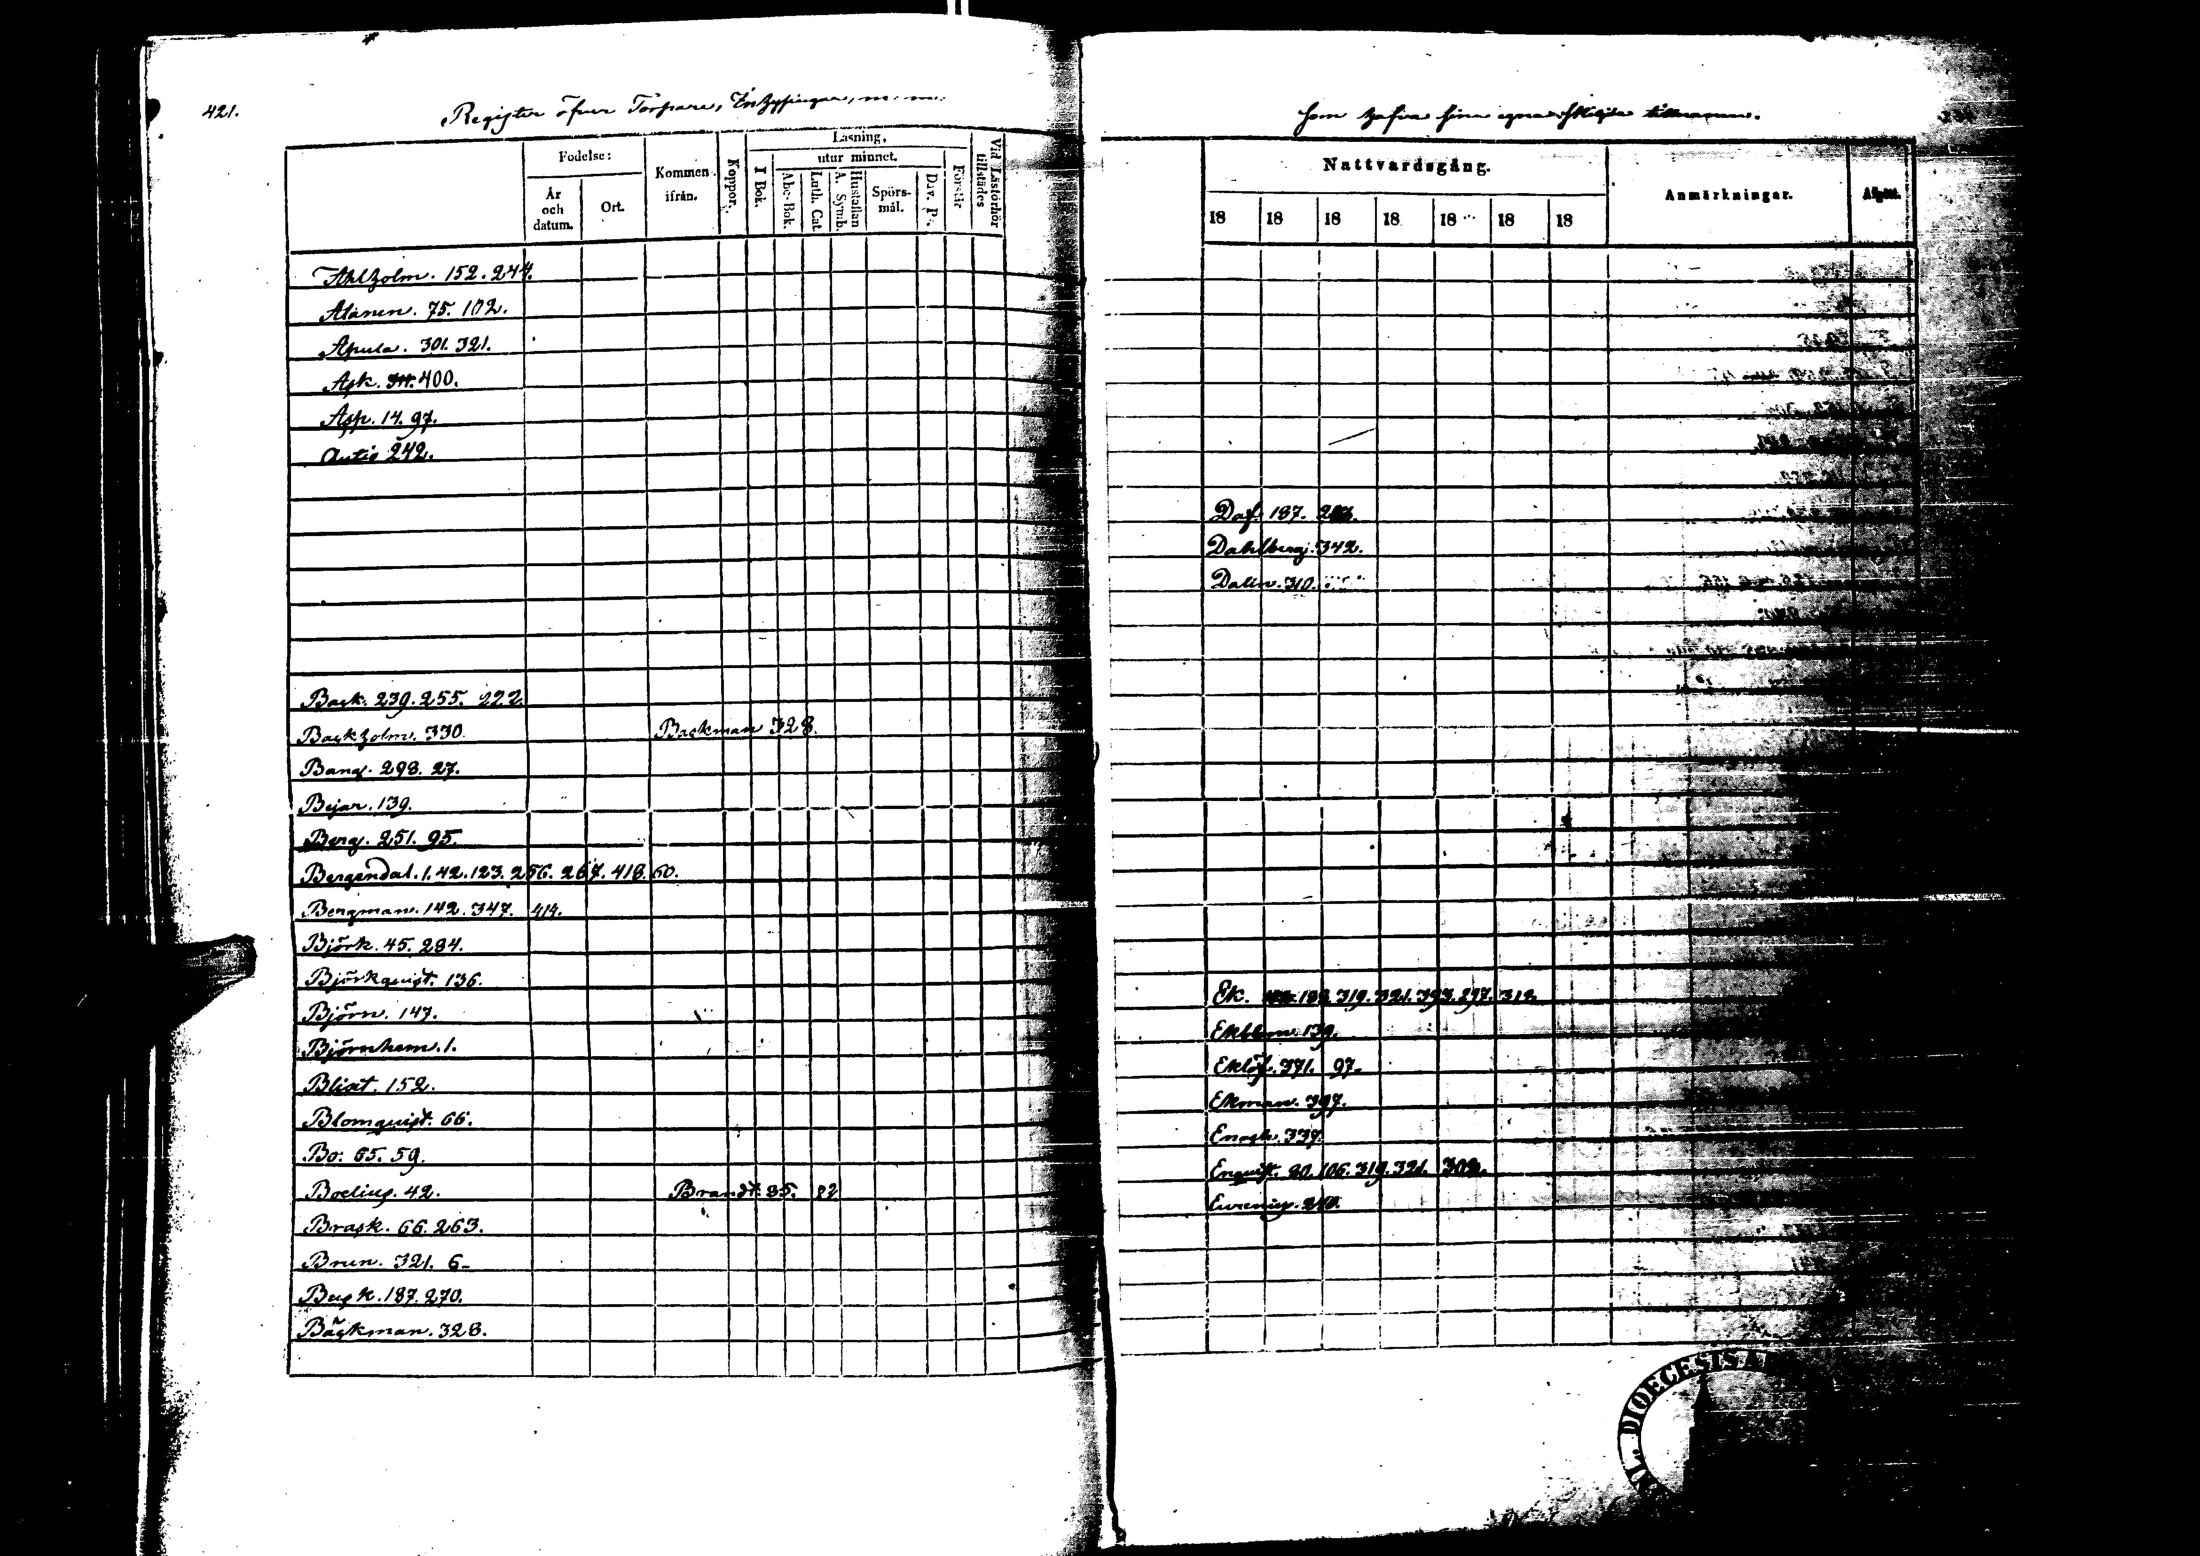 421.
Register öfver Torpare, Inhysingar, m. m.
Läsning,
Födelse:
utur minnet.
Kommen ifrån.
Koppor.
I Bok.
Abc-Bok.
Luth. Cat.
Hustaflan A. Symb.
Spörsmål.
Dav. Ps.
Förstår
Vid Läsförhör tillstädes
År och datum.
Ort.
Ahlholm. 152. 244.
Alanen. 75. 102.
Apula. 301. 321.
Ask. 400.
Asp. 14. 97.
Autio 242.
Back. 239. 255. 222.
Backholm. 330. Backman 328.
Bang. 298. 27.
Bejar. 139.
Berg. 251. 95.
Bergendal. 1. 42. 123. 256. 267. 418. 60.
Bergman. 142. 347. 414.
Björk. 45. 284.
Björkquist. 136.
Björn. 147.
Björnhem. 1.
Bliat. 152.
Blomquist. 66.
Bo. 65. 59.
Boelius. 42. Brandt. 35. 82
Brask. 66. 263.
Brun. 321. 6
Busk. 187. 270.
Bäckman. 328.
som hafva sina egna tillnamn.
Nattvardsgång.
Anmärkningar.
Afgått.
18 18 18 18 18 18 18
Daf. 187.
Dahlberg. 342.
Dalin. 310.
Ek. 188. 319. 321. 393. 297. 312.
Ekblom. 139.
Eklöf. 371. 97
Ekman. 397.
Enogh. 337.
Enquist. 20. 106. 319. 321. 302.
Eurenius. 240.
DIOECESIS